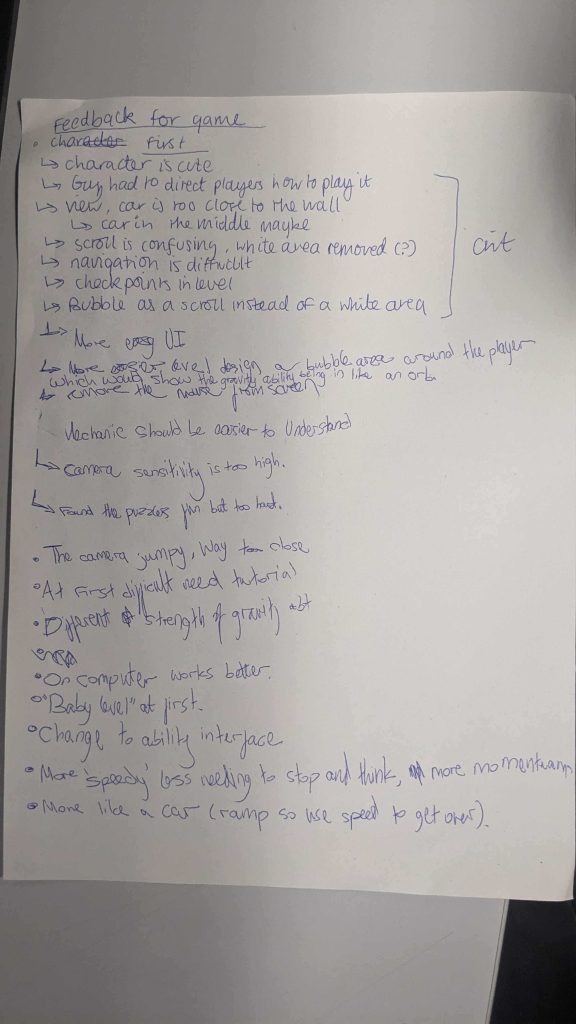 Feedback for game
• character first
↳ character is cute
↳ Guy had to direct players how to play it
↳ view, car is too close to the wall
↳ car in the middle mayke
↳ scroll is confusing, white area removed (?)
↳ navigation is difficult
↳ checkpoints in level
↳ Bubble as a scroll instead of a white area
cut
↳ More easy UI
↳ More easier level design a bubble area around the player
which would show the gravity ability being in like an orb.
↳ remove the mouse from screen
Mechanic should be easier to understand
↳ Camera sensitivity is too high.
↳ Found the puzzles fun but too hard.
• The camera jumpy, way too close
• At first difficult need tutorial
• Different strength of gravity
• On computer works better.
• "Baby level" at first.
• Change to ability interface
• More 'speedy' less needing to stop and think, more momentum
• More like a car (ramp so use speed to get over).